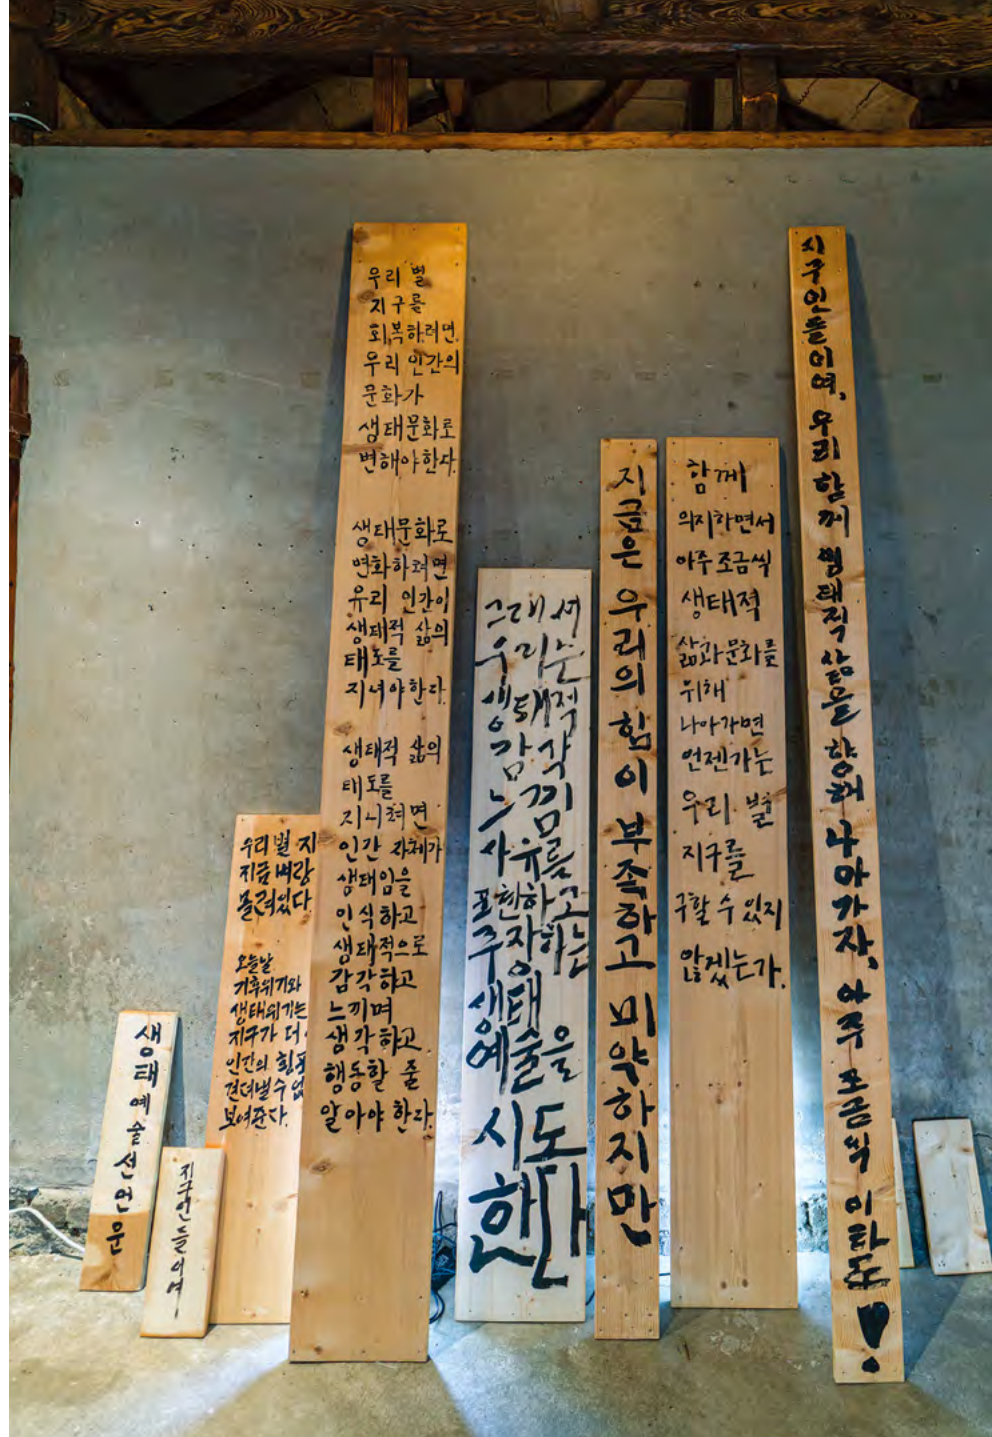 생태예술선언문
지구인들이여
우리 별 지
지금 벼랑
몰려있다
오늘날
기후위기와
생태위기는
지구가 더
인간의 횡포
견뎌낼 수 없
보여준다.
우리 별
지구를
회복하려면
우리 인간의
문화가
생태문화로
변해야한다.
생태문화로
변화하려면
우리 인간이
생태적 삶의
태도를
지녀야한다.
생태적 삶의
태도를
지니려면
인간 자체가
생태임을
인식하고
생태적으로
감각하고
느끼며
생각하고
행동할 줄
알아야 한다.
그래서
우리는
생태적
감각
느낌
사유를
표현하고
주장하는
생태
예술을
시도
한다
지금은 우리의 힘이 부족하고 미약하지만
함께
의지하면서
아주 조금씩
생태적
삶과문화를
위해
나아가면
언젠가는
우리 별
지구를
구할 수 있지
않겠는가.
지구인들이여, 우리 함께 생태적 삶을 향해 나아가자, 아주 조금씩 이라도!